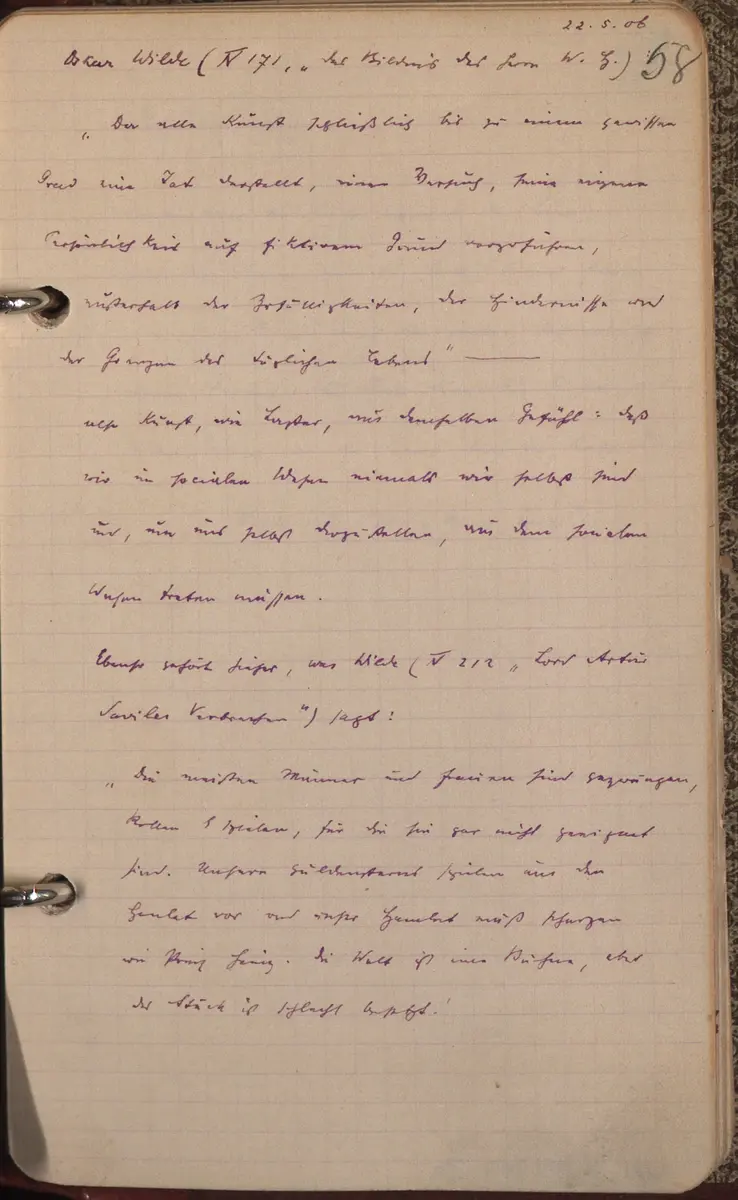 22.5.06
58
Oskar Wilde (IV 171, „das Bildnis des Herrn W. H.)
„Da alle Kunst schließlich bis zu einem gewissen
Grad eine Tat darstellt, einen Versuch, seine eigene
Persönlichkeit auf fiktivem Grund vorzuführen,
außerhalb der Zufälligkeiten, der Hindernisse und
der Grenzen des täglichen Lebens" ———
also Kunst, wie Laster, aus demselben Gefühl: daß
wir im socialen Wesen niemals wir selbst sind
und, um uns selbst darzustellen, aus dem socialen
Wesen treten müssen.
Ebenso gehört hieher, was Wilde (V 212 „Lord Artur
Saviles Verbrechen") sagt:
„Die meisten Männer und Frauen sind gezwungen,
Rollen z spielen, für die sie gar nicht geeignet
sind. Unsere Güldensterns spielen uns den
Hamlet vor und unser Hamlet muß scherzen
wie Prinz Heinz. Die Welt ist eine Bühne, aber
das Stück ist schlecht besetzt.'